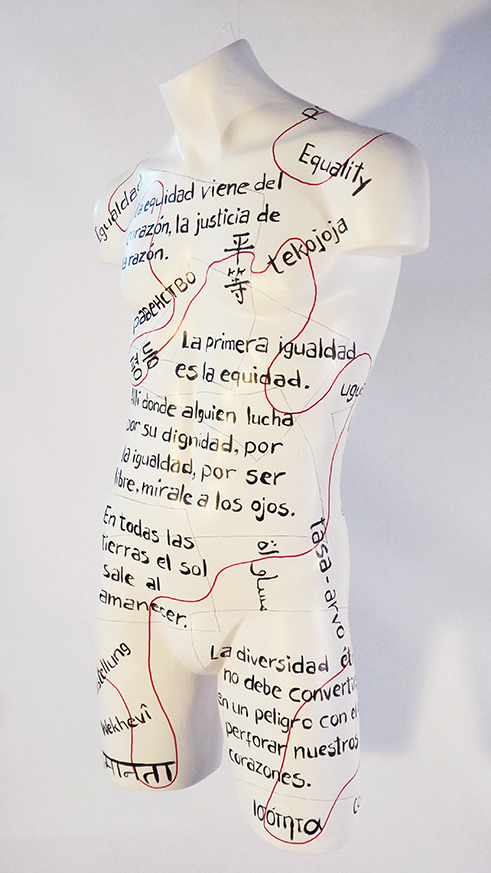 Equality
Igualdad
La equidad viene del
corazón, la justicia de
la razón.
平等
tekojoja
равенство
평등
La primera igualdad
es la equidad.
Allí donde alguien lucha
por su dignidad, por
la igualdad, por ser
libre, mírale a los ojos.
En todas las
tierras el sol
sale al
amanecer.
tasa-arvo
مساواة
La diversidad
no debe
en un peligro con
perforar nuestros
corazones.
Wekhevî
ισότητα